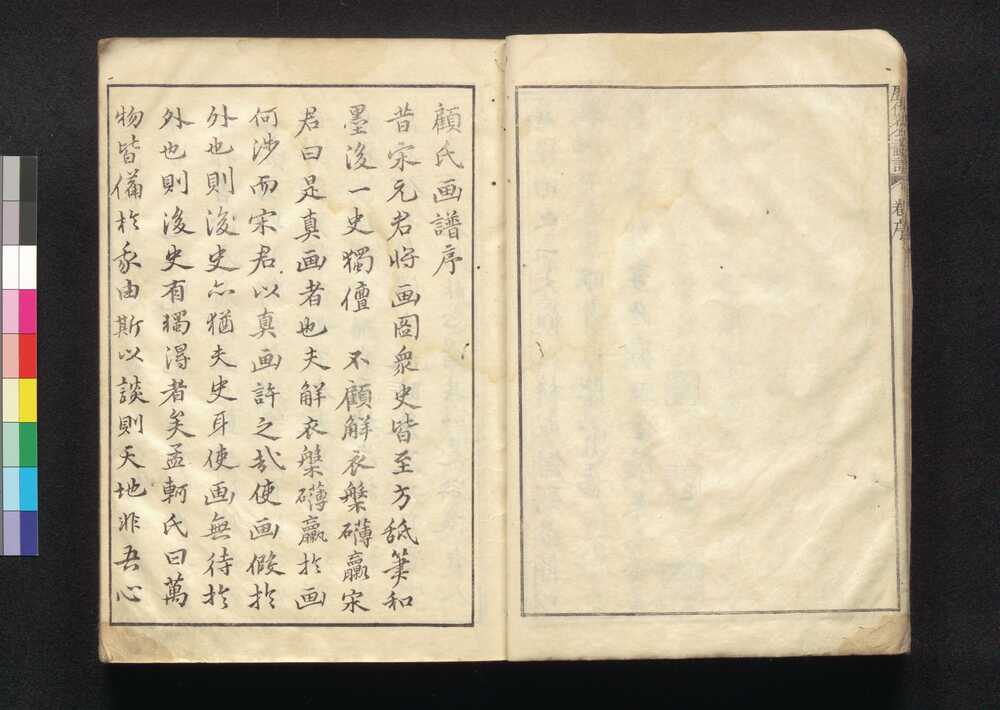 顧氏画譜序
昔宋元君将画啚衆史皆至方舐筆和
墨後一史獨儃 不顧解衣槃礴臝宋
君曰是真画者也夫解衣槃礴臝於画
何渉而宋君以真画許之哉使画假於
外也則後史亦猶夫史耳使画無待於
外也則後史有獨得者矣孟軻氏曰萬
物皆俻於我由斯以談則天地非吾心